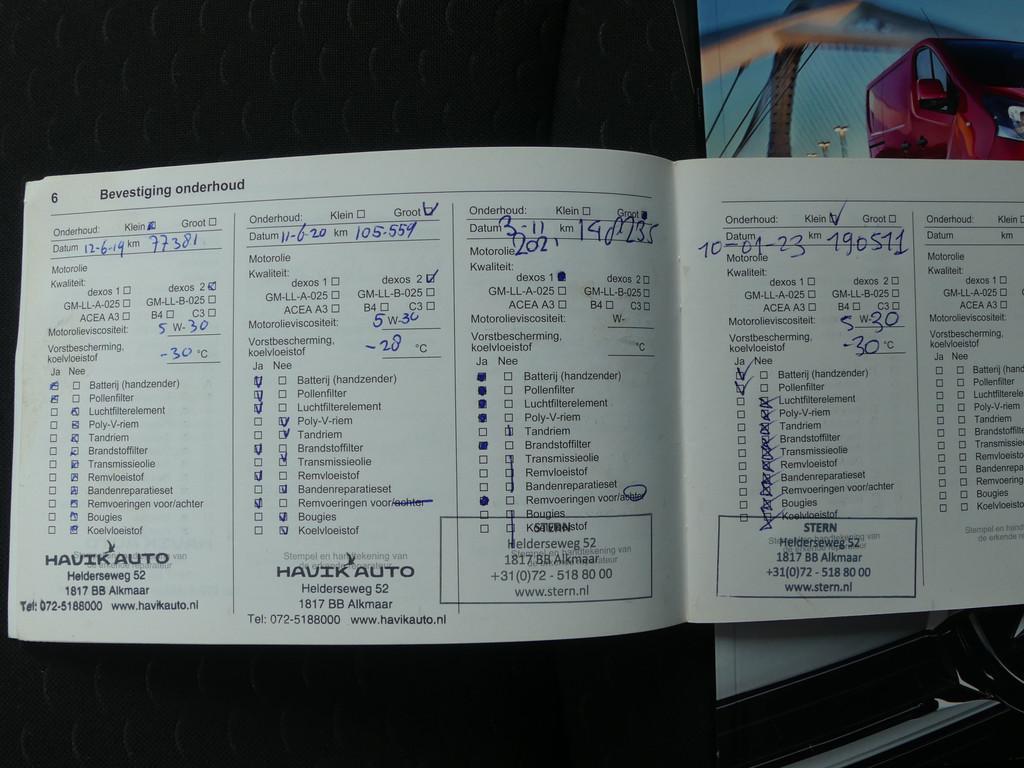 6 Bevestiging onderhoud
Onderhoud: Klein Groot
Datum 12-6-19 km 77381
Motorolie
Kwaliteit:
dexos 1 dexos 2
GM-LL-A-025 GM-LL-B-025
ACEA A3 B4 C3
Motorolieviscositeit: 5 W-30
Vorstbescherming,
koelvloeistof -30 °C
Ja Nee
Batterij (handzender)
Pollenfilter
Luchtfilterelement
Poly-V-riem
Tandriem
Brandstoffilter
Transmissieolie
Remvloeistof
Bandenreparatieset
Remvoeringen voor/achter
Bougies
Koelvloeistof
HAVIK AUTO
Helderseweg 52
1817 BB Alkmaar
Tel: 072-5188000 www.havikauto.nl
Onderhoud: Klein Groot
Datum 11-6-20 km 105-559
Motorolie
Kwaliteit:
dexos 1 dexos 2
GM-LL-A-025 GM-LL-B-025
ACEA A3 B4 C3
Motorolieviscositeit: 5 W-30
Vorstbescherming,
koelvloeistof -28 °C
Ja Nee
Batterij (handzender)
Pollenfilter
Luchtfilterelement
Poly-V-riem
Tandriem
Brandstoffilter
Transmissieolie
Remvloeistof
Bandenreparatieset
Remvoeringen voor/achter
Bougies
Koelvloeistof
Stempel en handtekening van
de erkende reparateur
HAVIK AUTO
Helderseweg 52
1817 BB Alkmaar
Tel: 072-5188000 www.havikauto.nl
Onderhoud: Klein Groot
Datum 3-11 km
2021
Motorolie
Kwaliteit:
dexos 1 dexos 2
GM-LL-A-025 GM-LL-B-025
ACEA A3 B4 C3
Motorolieviscositeit: W-
Vorstbescherming,
koelvloeistof °C
Ja Nee
Batterij (handzender)
Pollenfilter
Luchtfilterelement
Poly-V-riem
Tandriem
Brandstoffilter
Transmissieolie
Remvloeistof
Bandenreparatieset
Remvoeringen voor/achter
Bougies
Koelvloeistof
Stempel en handtekening van
de erkende reparateur
STERN
Helderseweg 52
1817 BB Alkmaar
+31(0)72 - 518 80 00
www.stern.nl
Onderhoud: Klein Groot
Datum km
10-01-23 190511
Motorolie
Kwaliteit:
dexos 1 dexos 2
GM-LL-A-025 GM-LL-B-025
ACEA A3 B4 C3
Motorolieviscositeit: 5 W-30
Vorstbescherming,
koelvloeistof -30 °C
Ja Nee
Batterij (handzender)
Pollenfilter
Luchtfilterelement
Poly-V-riem
Tandriem
Brandstoffilter
Transmissieolie
Remvloeistof
Bandenreparatieset
Remvoeringen voor/achter
Bougies
Koelvloeistof
Stempel en handtekening van
de erkende reparateur
STERN
Helderseweg 52
1817 BB Alkmaar
+31(0)72 - 518 80 00
www.stern.nl
Onderhoud: Klein
Datum km
Motorolie
Kwaliteit:
dexos 1
GM-LL-A-025
ACEA A3
Motorolieviscositeit:
Vorstbescherming,
koelvloeistof
Ja Nee
Batterij (hand
Pollenfilter
Luchtfiltere
Poly-V-riem
Tandriem
Brandstoffilte
Transmissie
Remvloeistof
Bandenrepa
Remvoering
Bougies
Koelvloeistof
Stempel en hand
de erkende